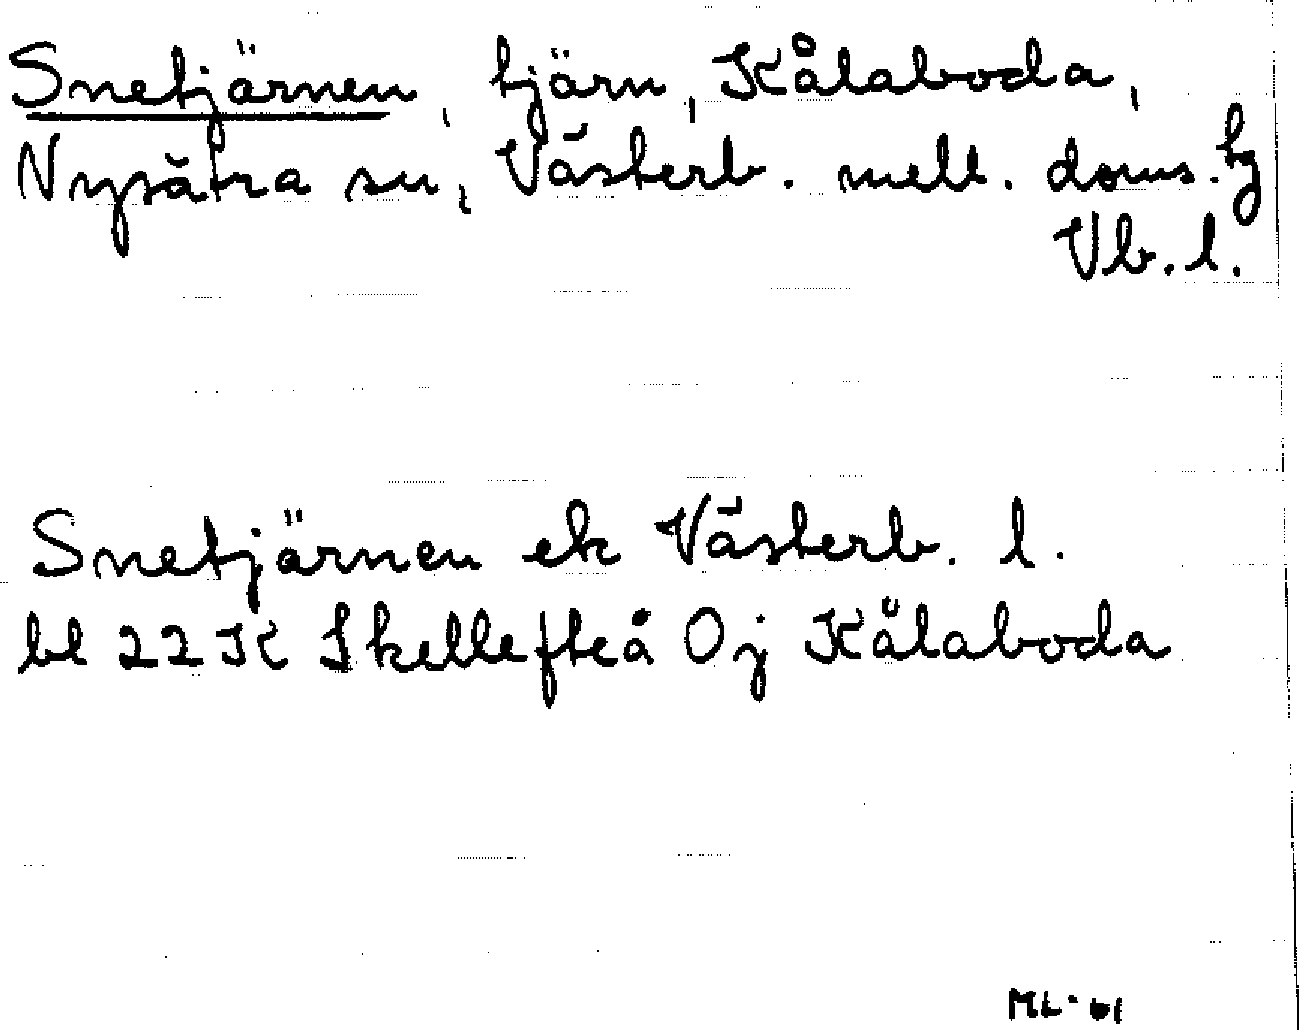 Snetjärnen, tjärn, Kålaboda,
Nysätra sn, Västerb. mell. doms. tg
Vb. l.
Snetjärnen ek Västerb. l.
bl 22 K Skellefteå Oj Kålaboda
ML-61